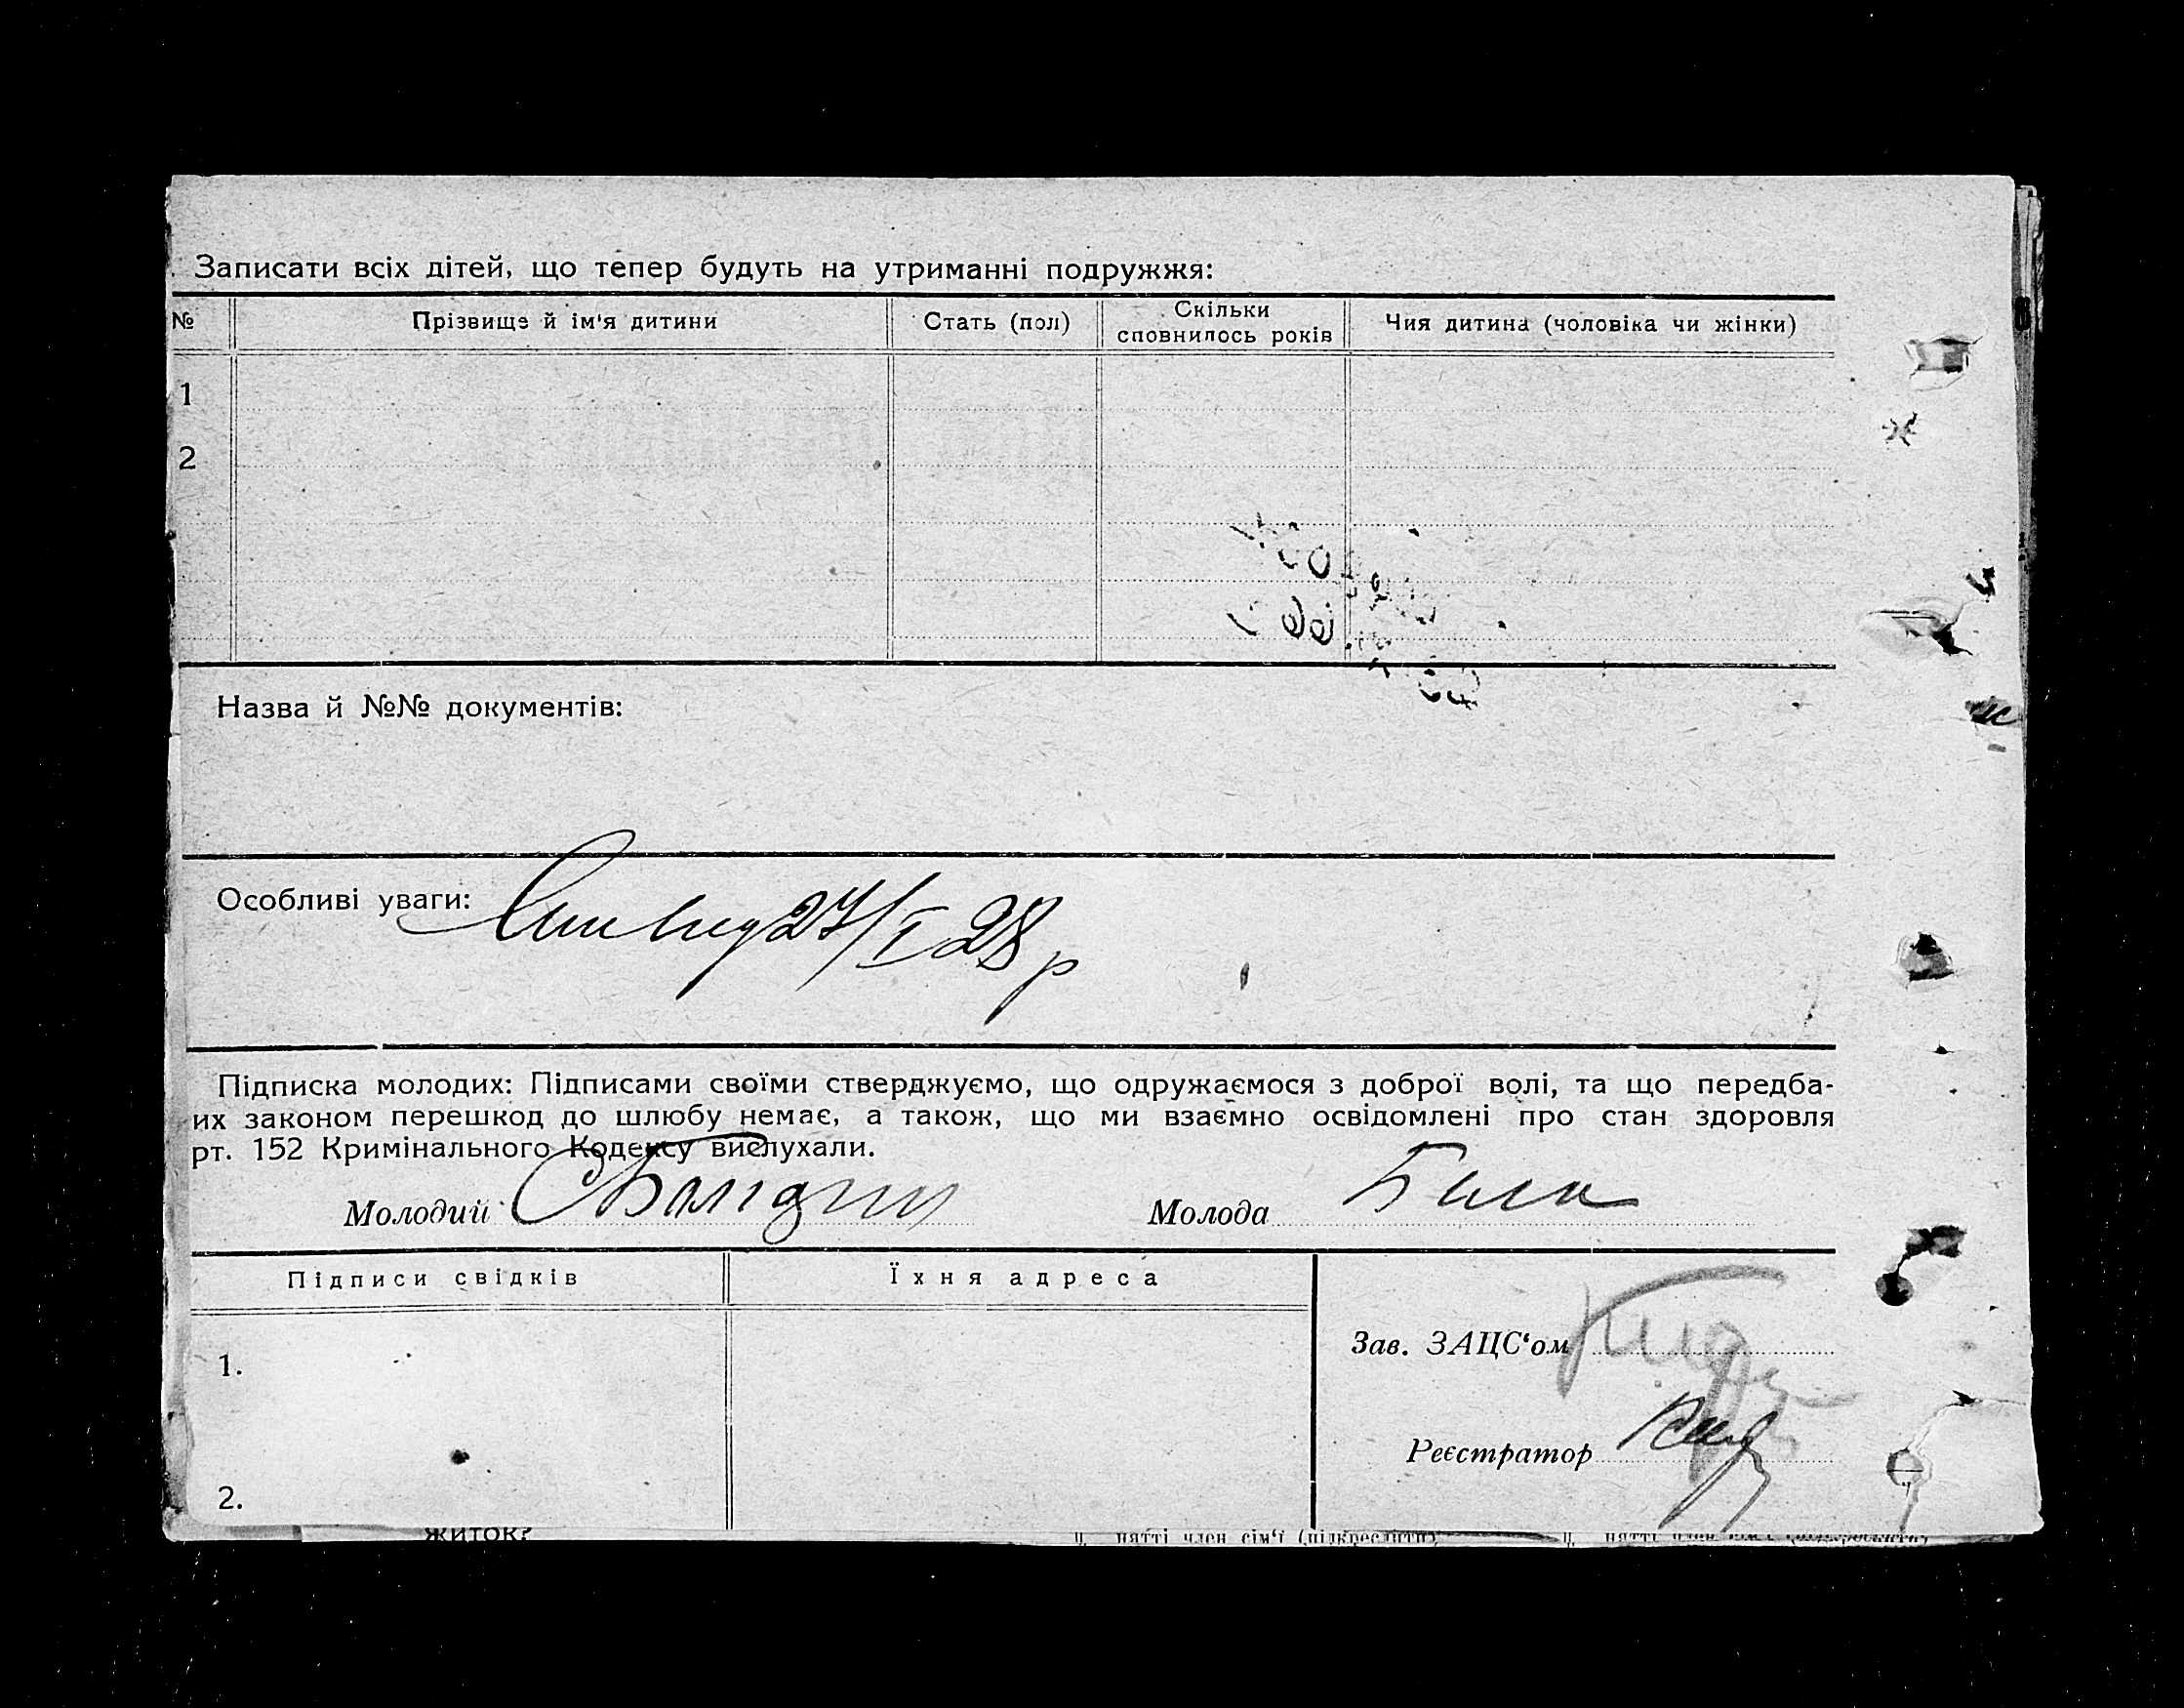 Записати всіх дітей, що тепер будуть на утриманні подружжя:
№ Прізвище й ім'я дитини Стать (пол) Скільки сповнилось років Чия дитина (чоловіка чи жінки)
1
2
Назва й №№ документів:
Особливі уваги: 27/I 28 р
Підписка молодих: Підписами своїми стверджуємо, що одружаємося з доброї волі, та що передба-
их законом перешкод до шлюбу немає, а також, що ми взаємно освідомлені про стан здоровля
рт. 152 Кримінального Кодексу вислухали.
Молодий Молода
Підписи свідків Їхня адреса
Зав. ЗАЦС'ом
1.
Реєстратор
2.
житок?
нятті член сім'ї (підкреслити) нятті член сім'ї (підкреслити)